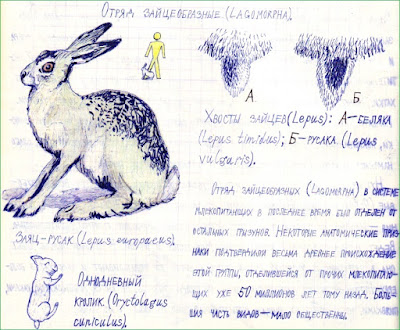 Отряд зайцеобразные (Lagomorpha).
А
Б
Хвосты зайцев (Lepus): А-беляка
(Lepus timidus); Б-русака (Lepus
vulgaris).
Заяц-русак (Lepus europaeus).
Однодневный
кролик (Oryctolagus
cuniculus).
Отряд зайцеобразных (Lagomorpha) в системе
млекопитающих в последнее время был отделен от
остальных грызунов. Некоторые анатомические приз
наки подтвердили весьма древнее происхождение
этой группы, отделившейся от прочих млекопитаю-
щих уже 50 миллионов лет тому назад. Боль-
шая часть видов - мало общественны.